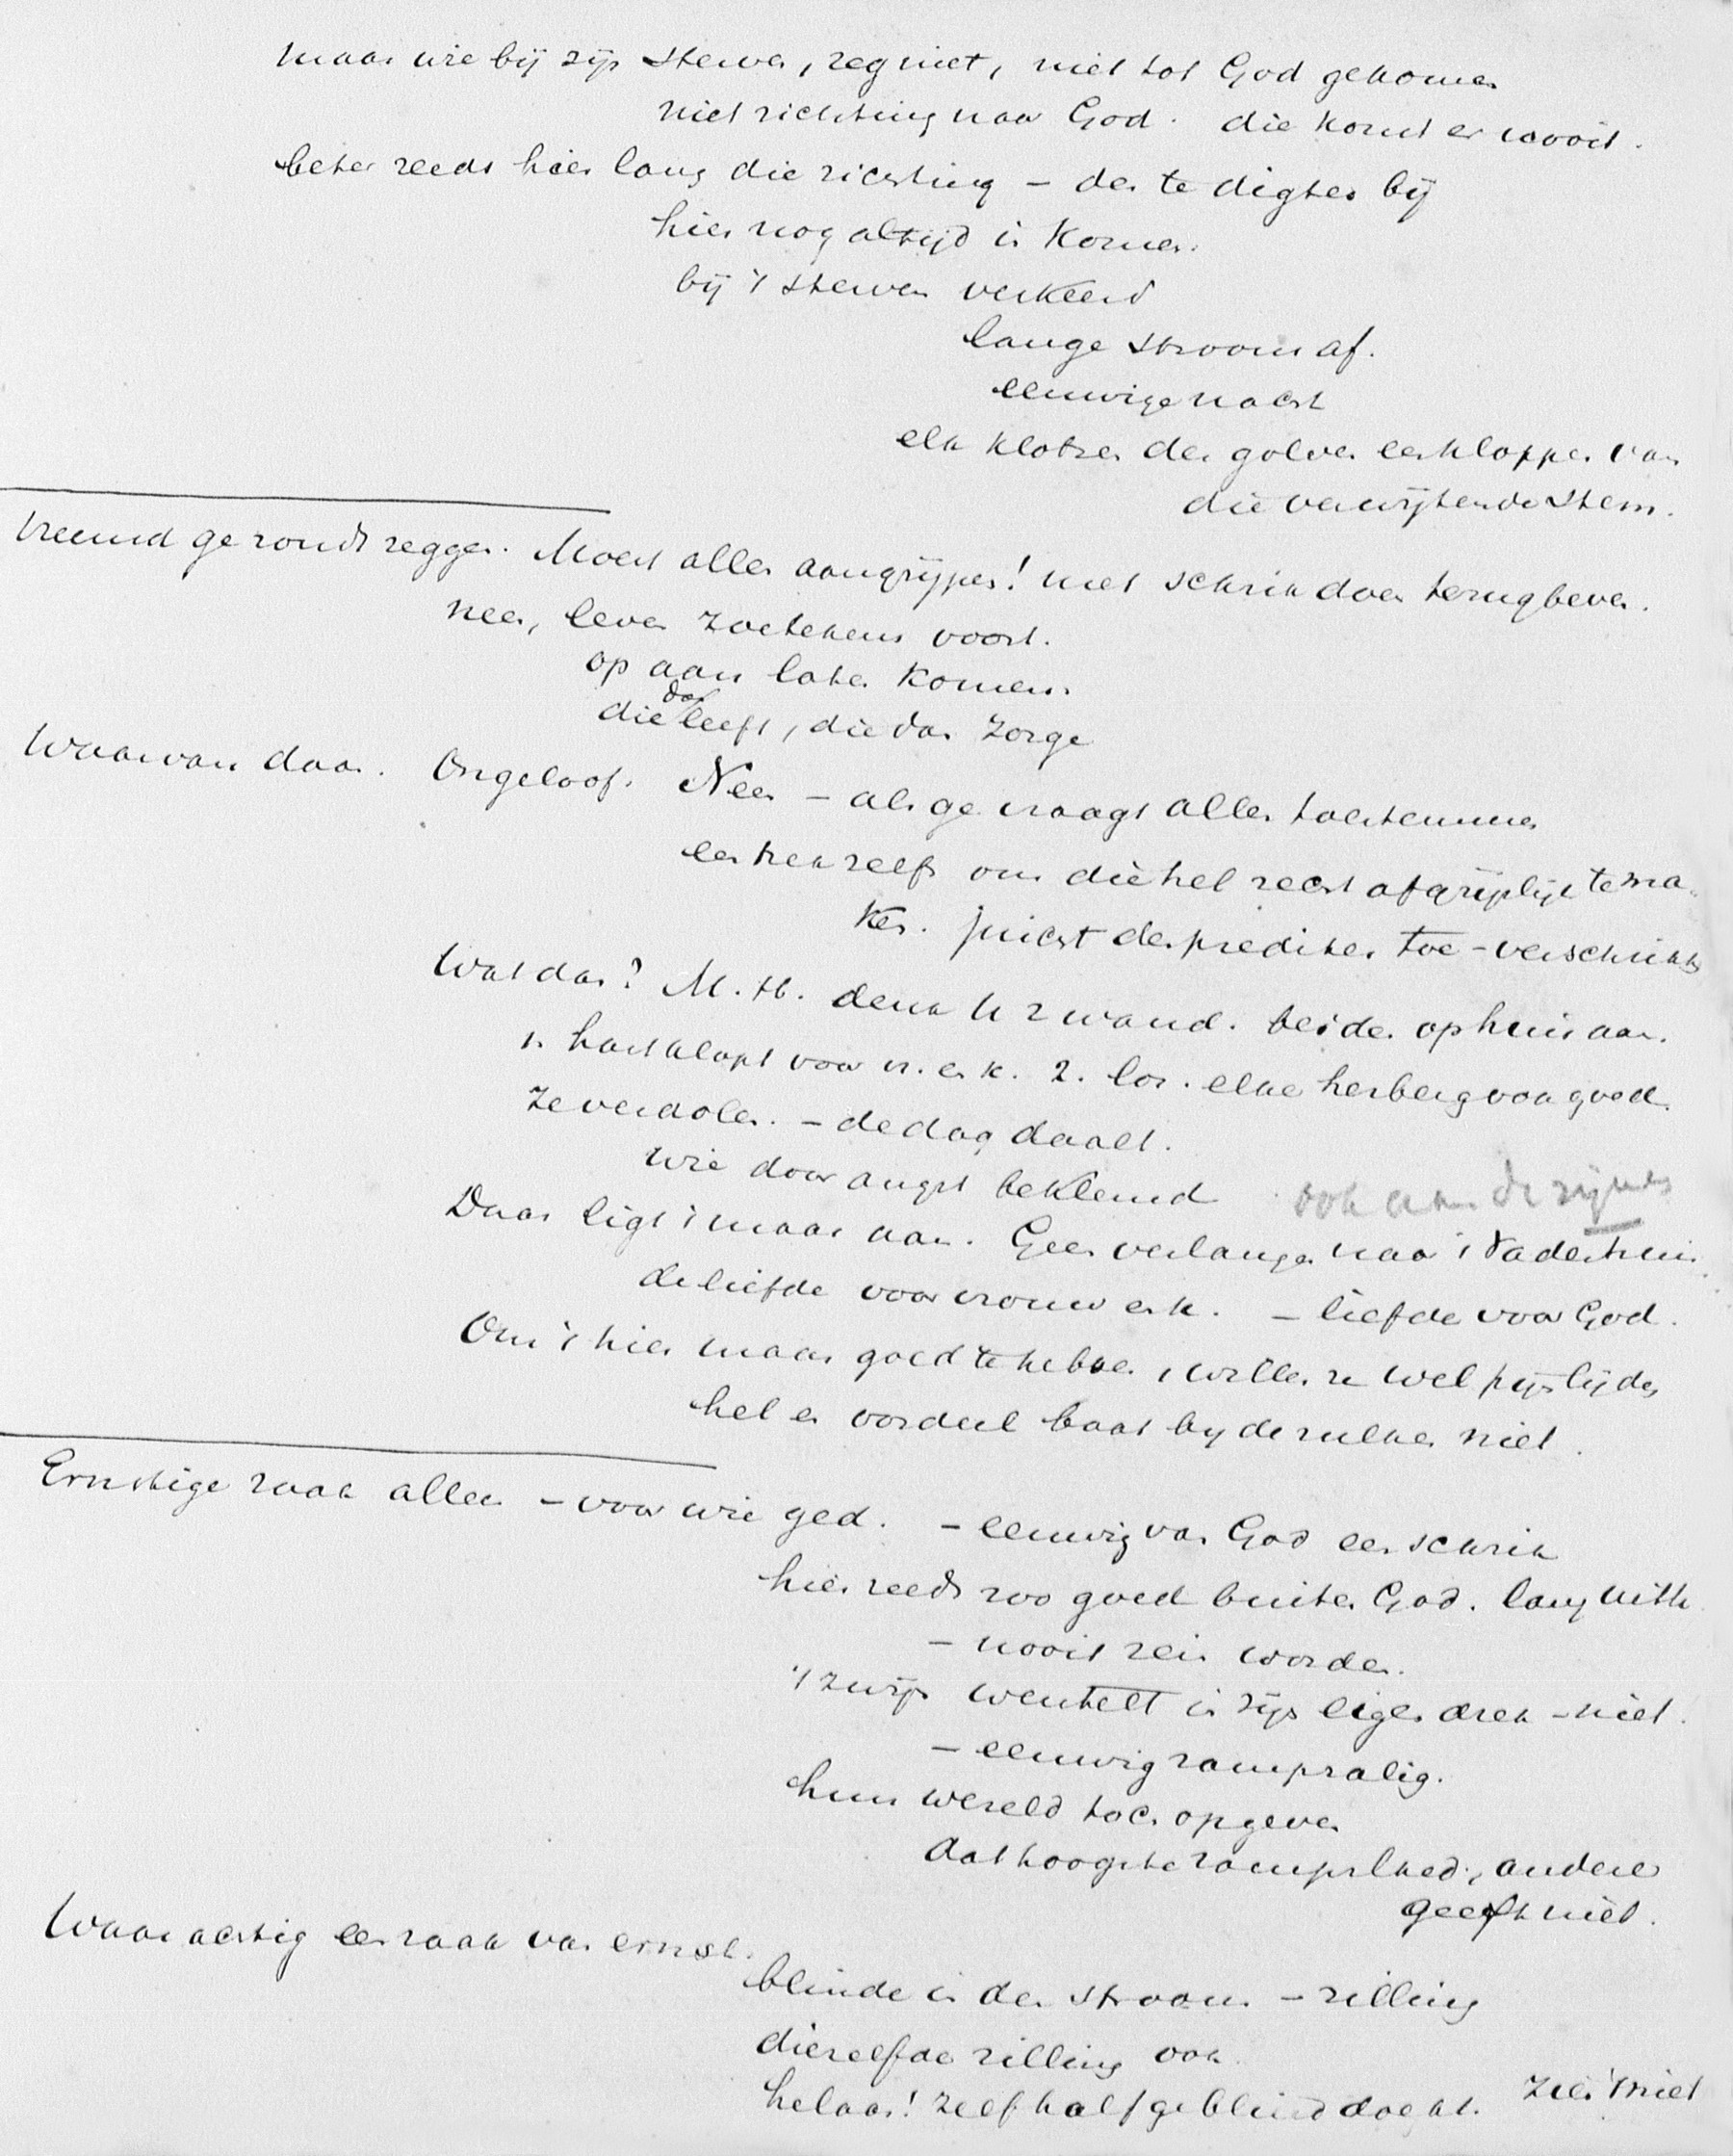 maar wie bij zijn sterven, zeg niet, niet tot God gekomen
niet richting naar God. die komt er nooit.
beter reeds hier lang die richting – des te digter bij
hier nog altijd in komen.
bij 't sterven verkeerd
lange stroom af.
eeuwige nacht
elk klotsen der golven een kloppen van
die verwijtende stem.
Vreemd gezondt zeggen. Moest allen aangrijpen! met schrik doen terugbeven.
neen, leven zoetekens voort.
op aan laten komen.
die dan leeft, die dan zorge
Waarvan daan. Ongeloof. Neen – als ge vraagt allen toestemmen
en trek zelfs om die hel recht afgrijslijk te ma-
ken. juicht den prediker toe – verschrikk
Wat dan? M. H. denk U 2 wand. beiden op huis aan.
1. hart klopt voor v. en k. 2. los. elke herberg voor goed.
Ze verdolen. – de dag daalt.
wie door angst beklemd ook aan de zijnen
Daar ligt 't maar aan. Geen verlangen naar 't Vaderhuis.
de liefde voor vrouw en k. – liefde voor God.
Om 't hier maar goed te hebben, willen ze wel pijn lijden
hel en oordeel baat bij de zulken niet.
Ernstige zaak allen – voor wie ged. – eeuwig van God een schrik
hier reeds zoo goed buiten God. lang uith.
– nooit rein worden.
't zwijn wentelt in zijn eigen drek – niet.
– eeuwig rampzalig.
hun wereld toen opgeven
dat hoogste rampzlhed., andere
geeft niet.
Waarachtig een zaak van ernst.
blinde in den stroom – rilling
diezelfde rilling ook.
helaas! zelf half geblinddoekt. zien 't niet